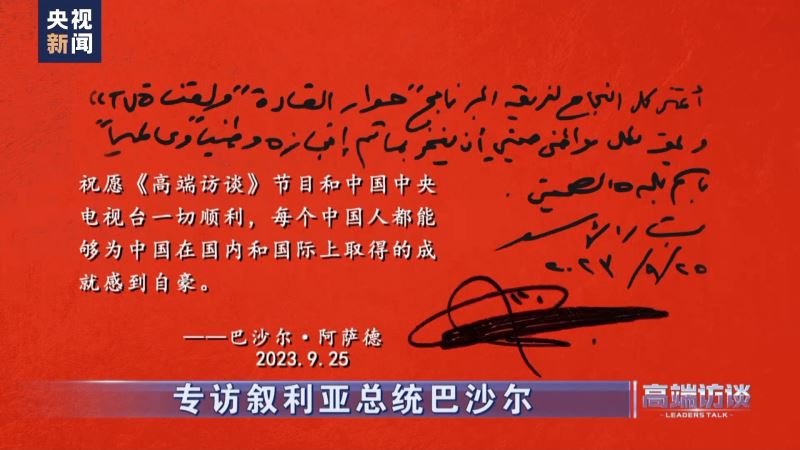 央视
新闻
أتمنى كل النجاح لفريق البرنامج "حوار القادة" ولقناة
"حوار القادة" ولقناة
كل مواطن صيني أن يفخر بما تم إنجازه وطنياً وعالمياً
باسم بلده الصين
بشار الأسد
٢٠٢٣/٩/٢٥
祝愿《高端访谈》节目和中国中央
电视台一切顺利，每个中国人都能
够为中国在国内和国际上取得的成
就感到自豪。
——巴沙尔·阿萨德
2023.9.25
专访叙利亚总统巴沙尔
高端访谈
LEADERS TALK